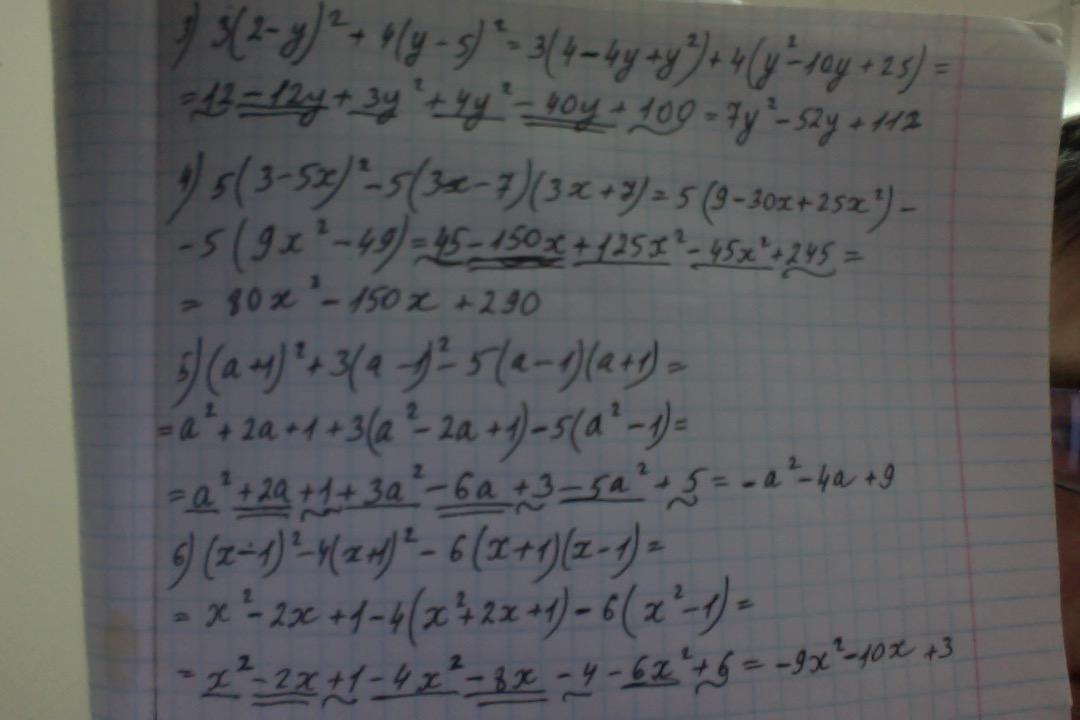 3) 3(2-y)² + 4(y-5)² = 3(4-4y+y²)+4(y²-10y+25) =
=12-12y+3y²+4y²-40y+100=7y²-52y+112
4) 5(3-5x)²-5(3x-7)(3x+7)=5(9-30x+25x²)-
-5(9x²-49)=45-150x+125x²-45x²+245=
= 80x²-150x+290
5)(a+1)²+3(a-1)²-5(a-1)(a+1)=
=a²+2a+1+3(a²-2a+1)-5(a²-1)=
=a²+2a+1+3a²-6a+3-5a²+5=-a²-4a+9
6)(x-1)²-4(x+1)²-6(x+1)(x-1)=
= x²-2x+1-4(x²+2x+1)-6(x²-1)=
= x²-2x+1-4x²-8x-4-6x²+6=-9x²-10x+3